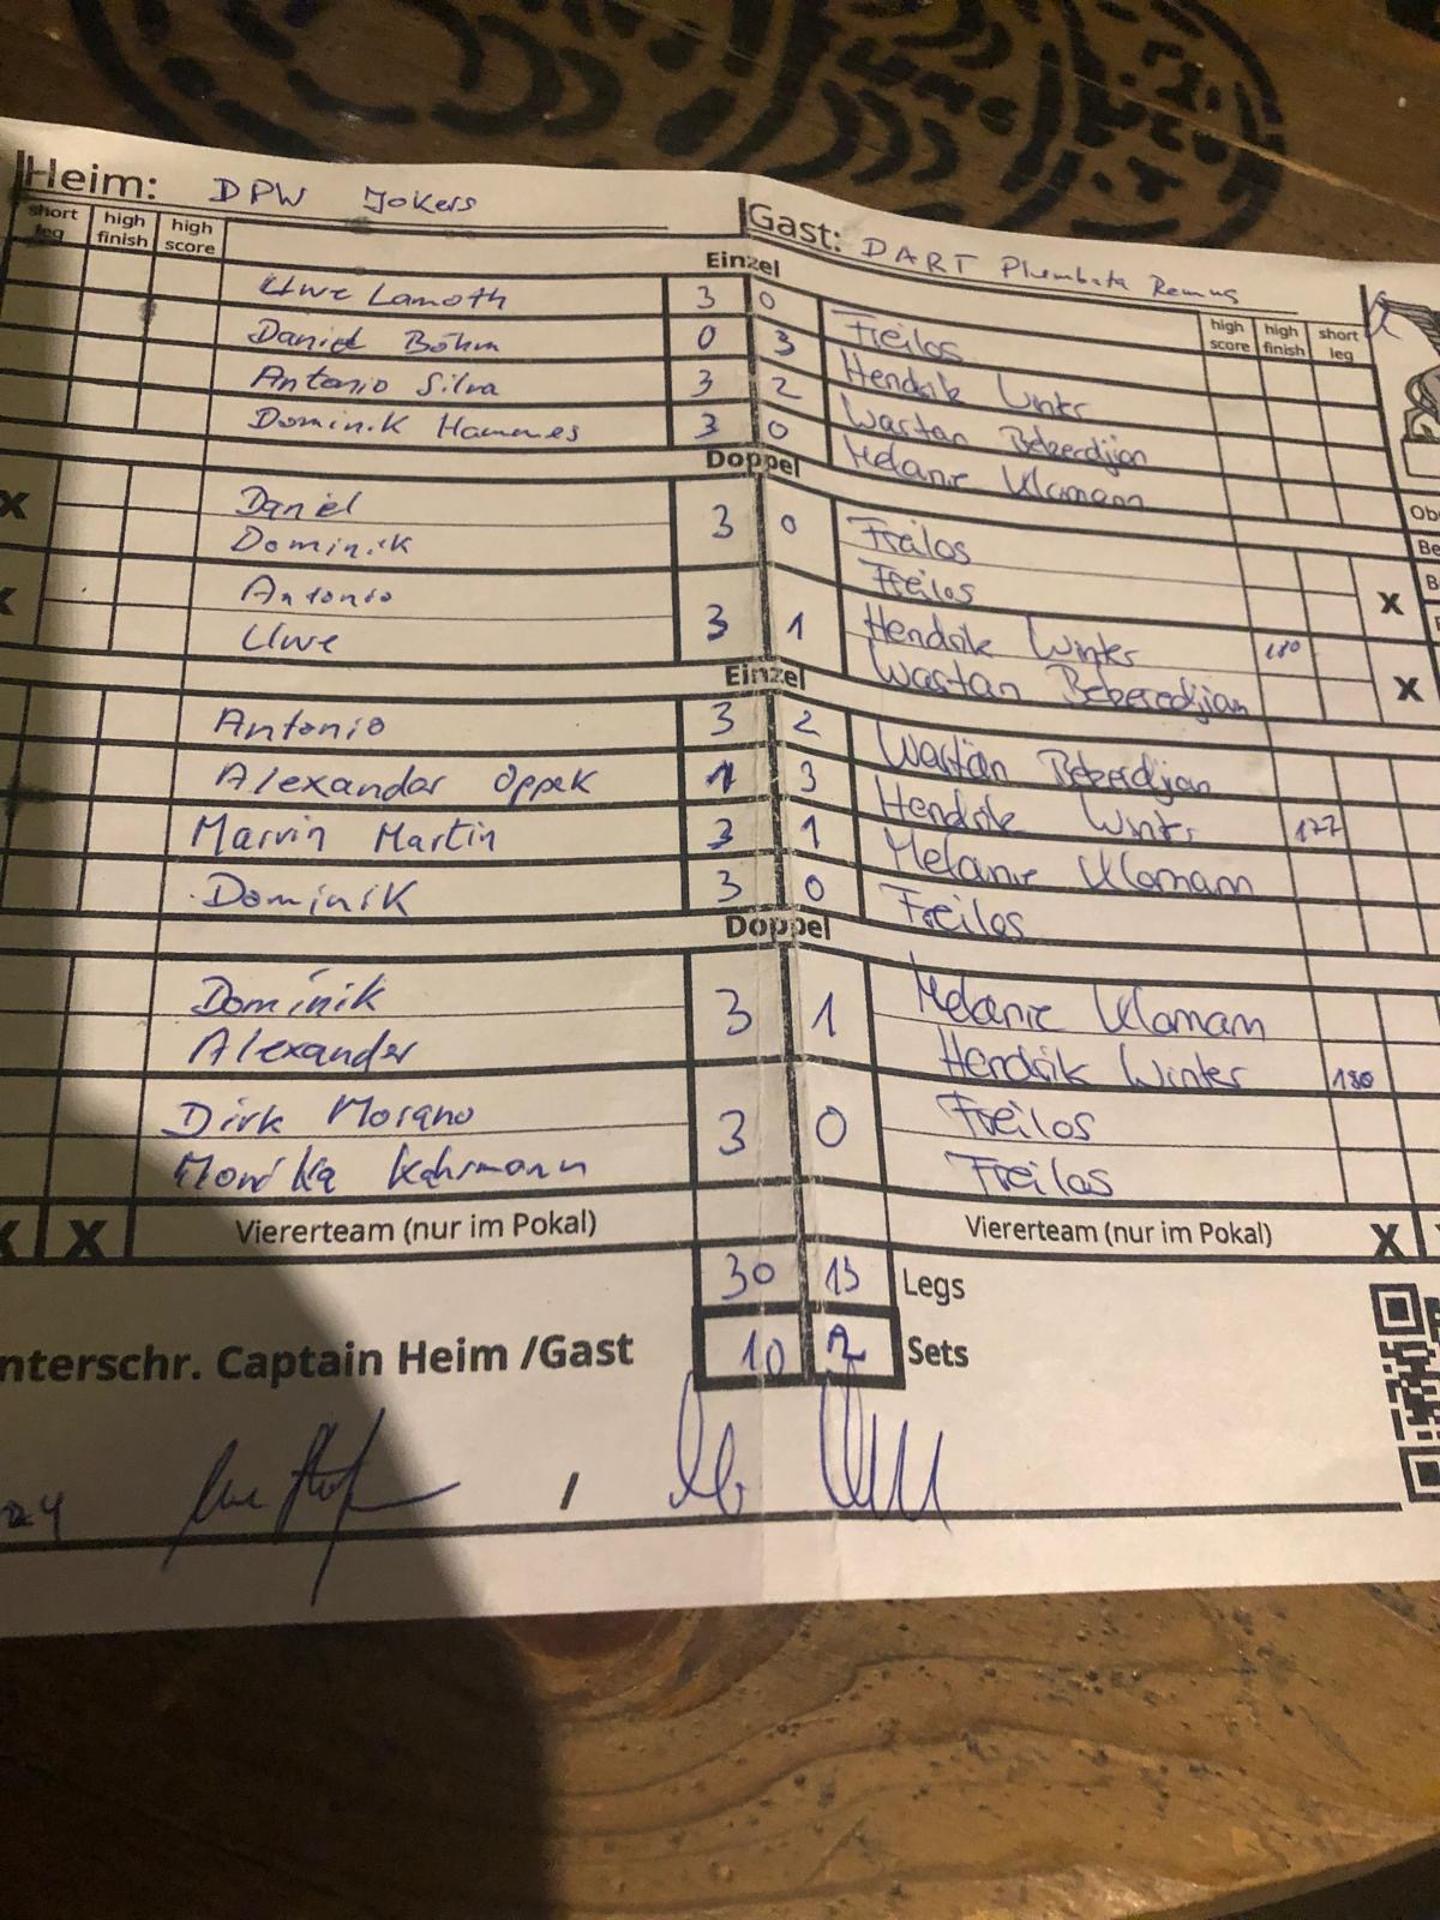 Heim: DPW Jokers Gast: DART Plumbata Remus
short leg high finish high score Einzel high score high finish short leg
Uwe Lamoth 3 0 Freilos
Daniel Böhm 0 3 Hendrik Winter
Antonio Silva 3 2 Wastan Beberdjian
Dominik Hammes 3 0 Melanie Klomann
Doppel
Daniel 3 0 Freilos
Dominik Freilos
X X
Antonio 3 1 Hendrik Winter 180
Uwe Wastan Beberedjian
X X
Einzel
Antonio 3 2 Wastan Beberdjian
Alexander Oppek 1 3 Hendrik Winter 177
Marvin Martin 3 1 Melanie Klomann
Dominik 3 0 Freilos
Doppel
Dominik 3 1 Melanie Klomann
Alexander Hendrik Winter 180
Dirk Morano 3 0 Freilos
Monika Kahrmann Freilos
X X Viererteam (nur im Pokal) Viererteam (nur im Pokal) X
30 13 Legs
nterschr. Captain Heim /Gast 10 2 Sets
24 /